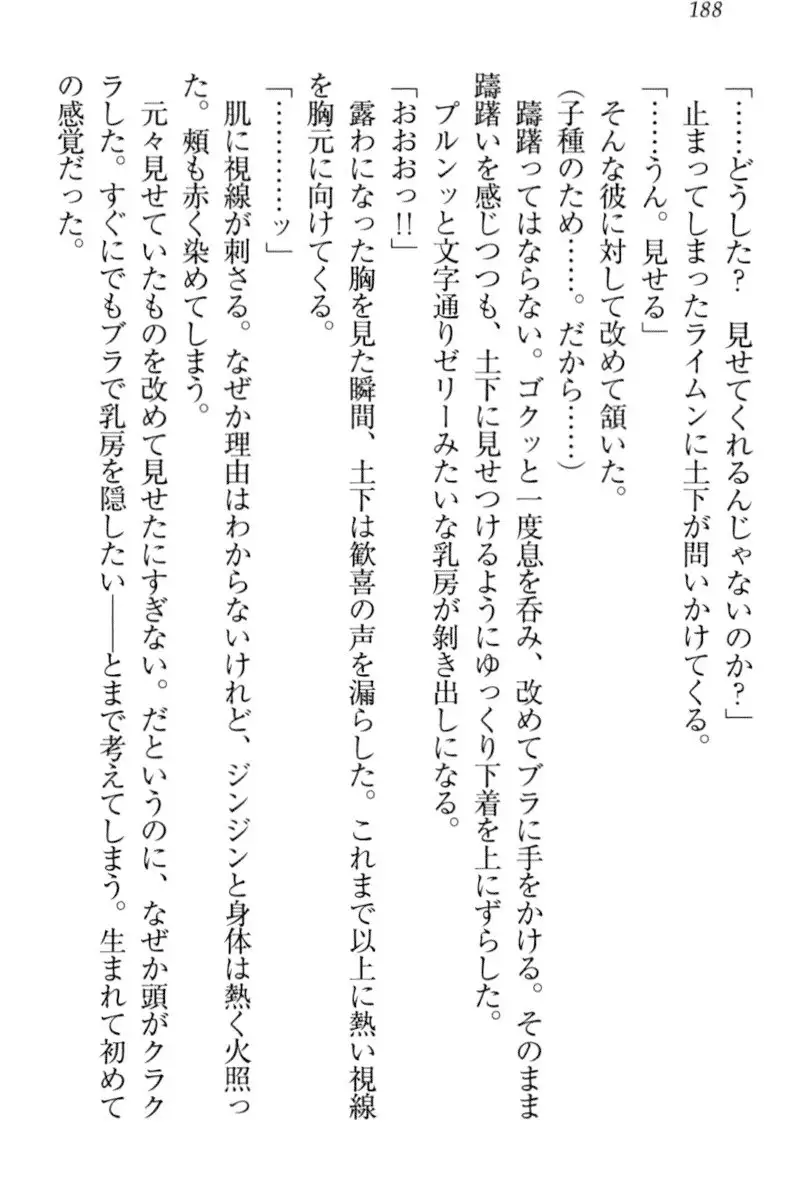 188
「……どうした？　見せてくれるんじゃないのか？」
止まってしまったライムンに土下が問いかけてくる。
「……うん。見せる」
そんな彼に対して改めて頷いた。
（子種のため……。だから……）
躊躇ってはならない。ゴクッと一度息を呑み、改めてブラに手をかける。そのまま
躊躇いを感じつつも、土下に見せつけるようにゆっくり下着を上にずらした。
プルンッと文字通りゼリーみたいな乳房が剝き出しになる。
「おおおっ!!」
露わになった胸を見た瞬間、土下は歓喜の声を漏らした。これまで以上に熱い視線
を胸元に向けてくる。
「…………ッ」
肌に視線が刺さる。なぜか理由はわからないけれど、ジンジンと身体は熱く火照っ
た。頰も赤く染めてしまう。
元々見せていたものを改めて見せたにすぎない。だというのに、なぜか頭がクラク
ラした。すぐにでもブラで乳房を隠したい――とまで考えてしまう。生まれて初めて
の感覚だった。